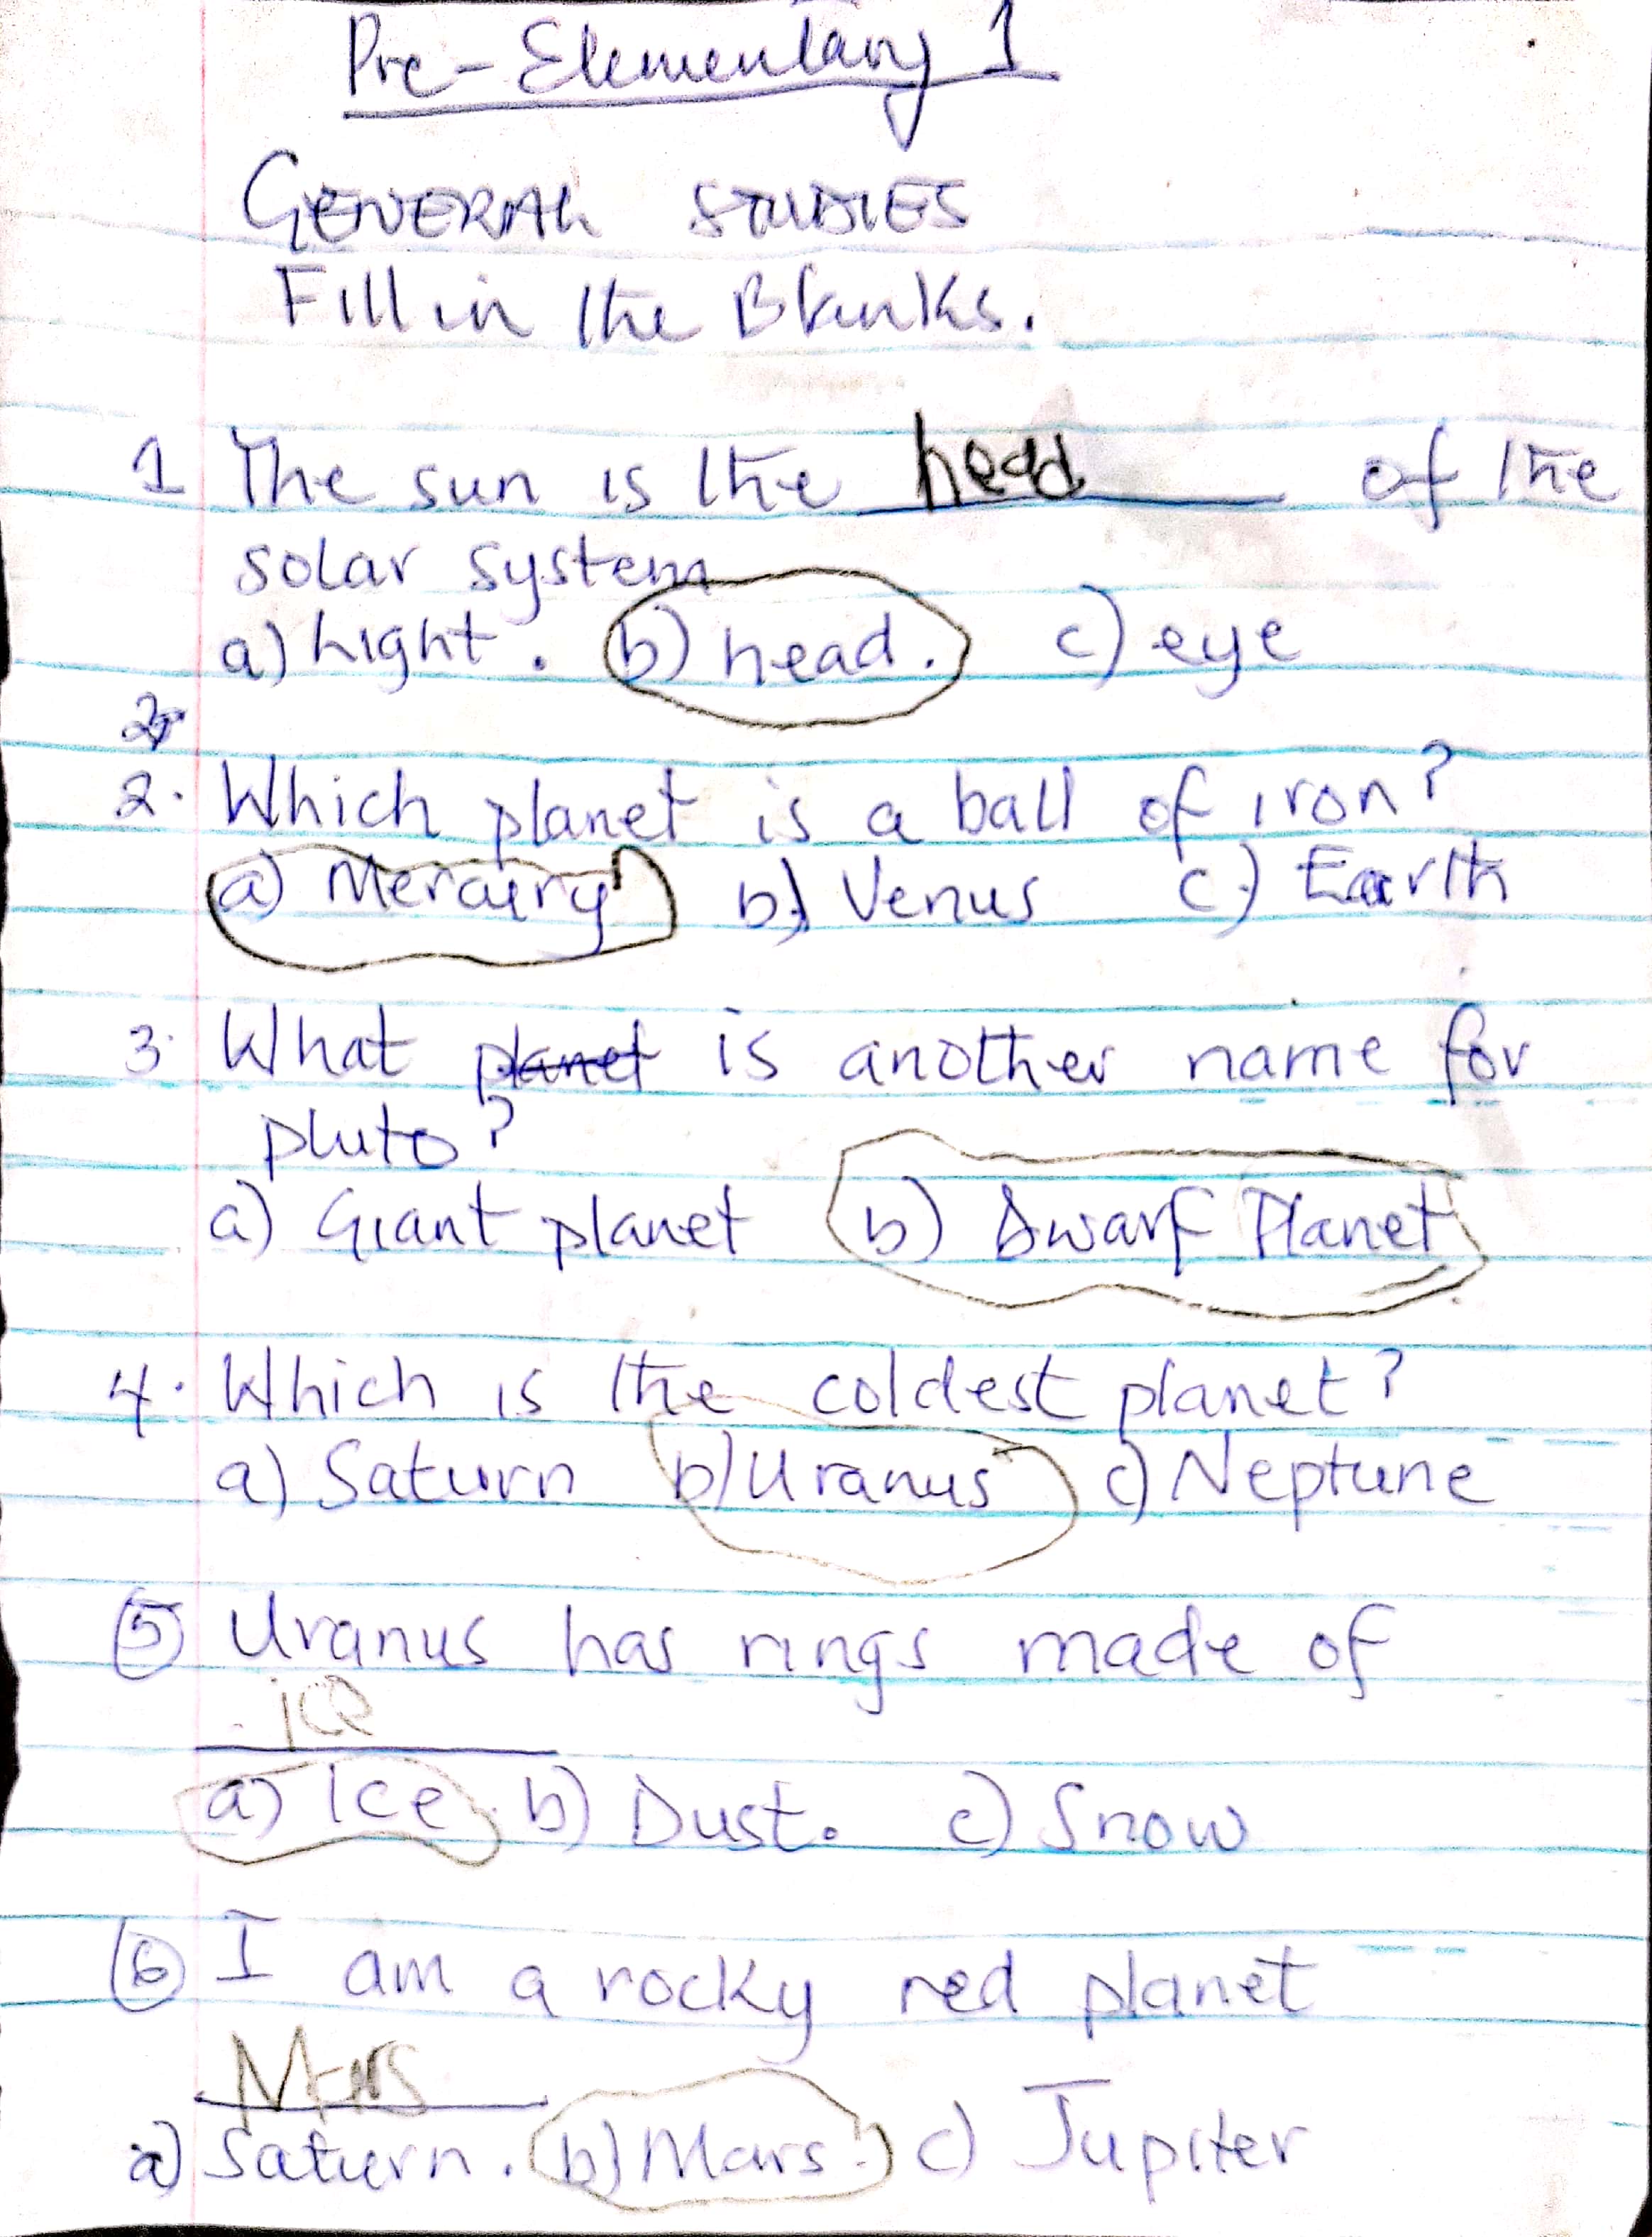 Pre-Elementary 1
GENERAL STUDIES
Fill in the Blanks.
1 The sun is the head of the
solar system
a) Light. b) head. c) eye
2
2. Which planet is a ball of iron?
a) Mercury b) Venus c) Earth
3. What planet is another name for
pluto?
a) Giant planet b) Dwarf Planet
4. Which is the coldest planet?
a) Saturn b) Uranus c) Neptune
5 Uranus has rings made of
ice
a) Ice. b) Dust. c) Snow
6 I am a rocky red planet
Mars
a) Saturn. b) Mars. c) Jupiter